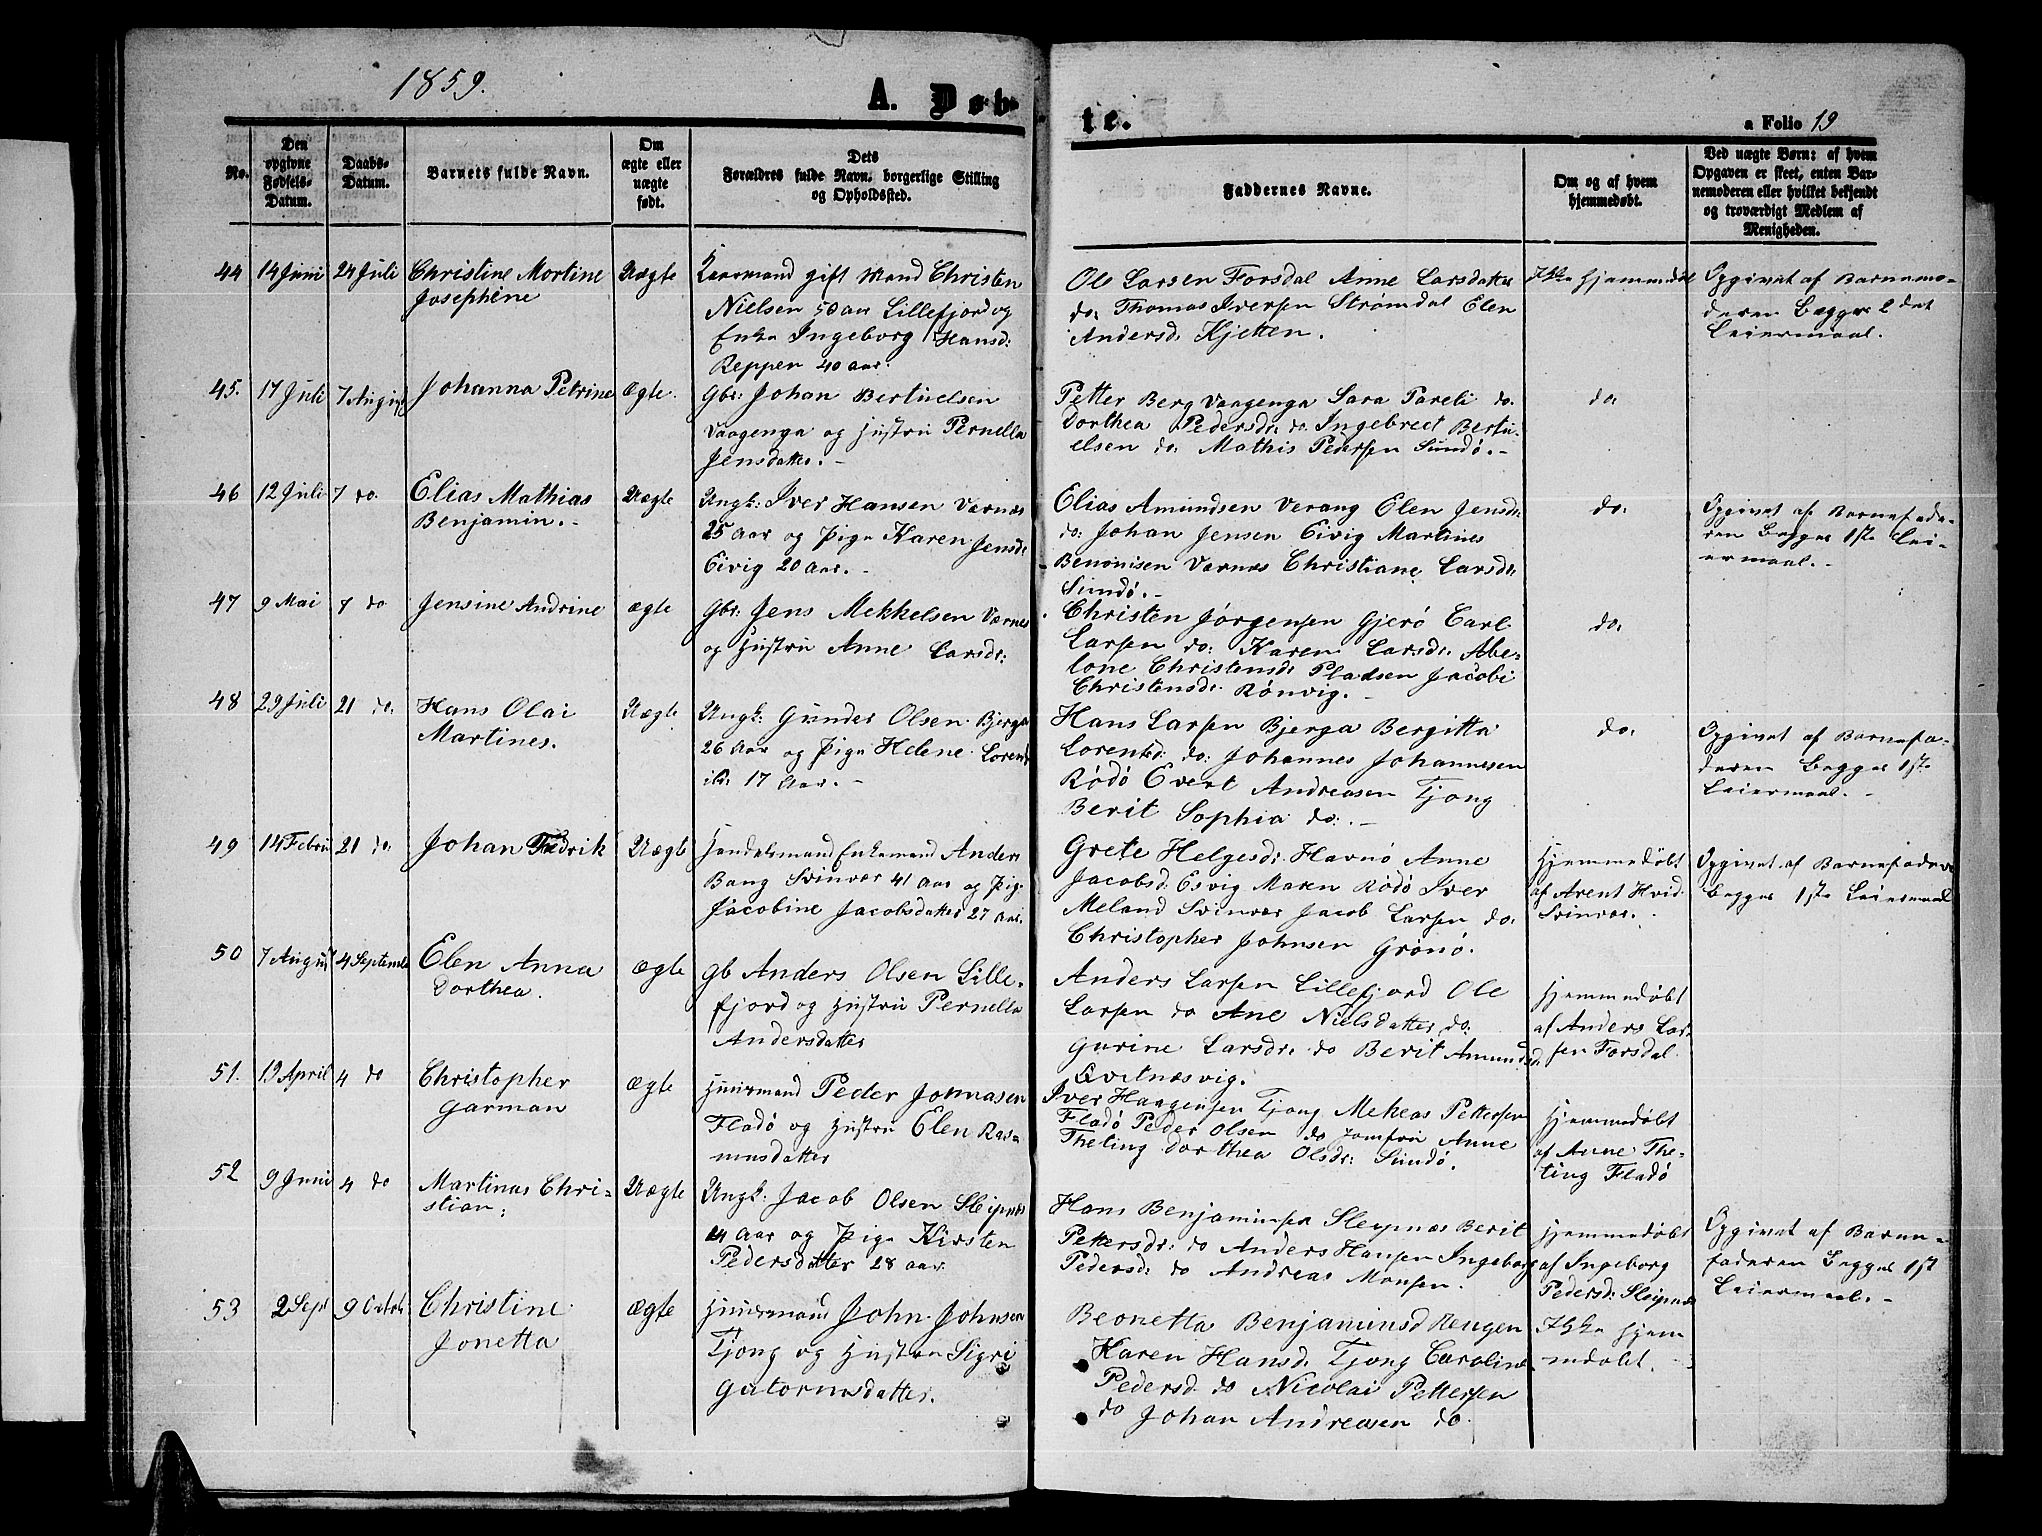 1859.
A. Døb-
te.
a Folio 19
No.
Den opgivne Fødsels-Datum.
Daabs-Datum.
Barnets fulde Navn.
Om ægte eller uægte født.
Dets Forældres fulde Navn, borgerlige Stilling og Opholdssted.
Faddernes Navne.
Om og af hvem hjemmedøbt.
Ved uægte Børn: af hvem Opgaven er skeet, enten Barnemoderen eller hvilket bekjendt og troværdigt Medlem af Menigheden.
44 14 Juni 24 Juli Christine Mortine
Josephine
Uægte
Kaarmand gift Mand Christen
Nielsen 50 aar Lillefjord og
Enke Ingeborg Hansd:
Reppen 40 aar.
Ole Larsen Forsdal Anne Larsdatter
do: Thomas Iversen Strømdal Elen
Andersd: Kjetten.
Ikke hjemmedøbt
Opgivet af Barnemo-
deren Begges 2 det
Leiermaal.
45. 17 Juli 7 August Johanna Petrine
ægte.
Gbr: Johan Bertuelsen
Vaagenga og Hustru Pernella
Jensdatter. -
Petter Berg Vaagenga Sara Pareli do.
Dorthea Pedersdr do Ingebret Bertu-
elsen do: Mathis Pedersen Sundø. -
do.
46 12 Juli 7 do. Elias Mathias
Benjamin. -
Uægte
Ungk: Iver Hansen Værnæs
25 Aar og Pige Karen Jensd:
Eivig 20 Aar. -
Elias Amundsen Verang Elen Jensdr
do: Johan Jensen Eivig Martines
Benonisen Værnæs Christiane Larsdr.
Sundø. -
do:
Opgivet af Barnefade-
ren Begges 1ste Lei-
ermaal. -
47 9 Mai 7 do Jensine Andrine
ægte
Gbr: Jens Mekkelsen Værnes
og Hustru Anne Larsdr:
Christen Jørgensen Gjerø Carl
Larsen do: Karen Larsdr. Abe-
lone Christensdr Pladsen Jacobi
Christensdr. Rønvig. -
do.
48 29 Juli 21 do: Hans Olai
Martines.
Uægte
Ungk: Gunder Olsen Bjerga
26 Aar og Pige Helene Lorend
17 Aar. -
Hans Larsen Bjerga Bergitta
Lorentsd. do: Johannes Johannesen
Rødø Evert Andreasen Tjong
Berit Sophia do: -
do.
Opgivet af Barnefa-
deren Begges 1ste
Leiermaal. -
49 14 Febru 21 do Johan Fredrik
Uægte
Handelsmand Enkemand Anders
Bang Svinvær 41 Aar og Pige
Jacobine Jacobsdatter 27 Aar.
Grete Helgesdr. Havnø Anne
Jacobsd: Esvig Maren Rødø Iver
Meland Svinvær Jacob Larsen do:
Christopher Johnsen Grønø.
Hjemmedøbt
af Arent Hvid
Svinvær.
Opgivet af Barnefaderen
Begges 1ste Leiermaal
50 7 August 4 Septembr Elen Anna
Dorthea.
ægte
gb Anders Olsen Lille-
fjord og Hustru Pernella
Andersdatter
Anders Larsen Lillefjord Ole
Larsen do Ane Nielsdatter do:
Gurine Larsdr: do Berit Amundsd:
Qvitnæsvig.
Hjemmedøbt
af Anders Lar-
sen Forsdal
51. 19 April 4 do Christopher
Garman
ægte
Huusmand Peder Jonnasen
Fladø og Hustru Elen Ras-
musdatter
Iver Haagensen Tjong Mekeas Pettersen
Fladø Peder Olsen do Jomfru Anne
Theting Dorthea Olsdr: Sundø.
Hjemmedøbt
af Anne The-
ting Fladø
52 9 Juni 4 do Martinus Chri-
stian;
Uægte
Ungk: Jacob Olsen Sleipnæs
24 Aar og Pige Kirsten
Pedersdatter 28 aar.
Hans Benjaminsen Sleipnæs Berit
Pettersdr: do Anders Hansen Ingeborg
Pedersd: do Andreas Monsen.
Hjemmedøbt
af Ingeborg
Pedersd: Sleipnæs
Opgivet af Barne-
faderen Begges 1st
Leiermaal. -
53 2 Sept 9 Octob Christine
Jonetta
ægte
Huusmand John Johnsen
Tjong og Hustru Sigri
Gutormsdatter.
Beonetta Benjaminsd Rengen
Karen Hansd: Tjong Caroline
Pedersd do Nicolai Pettersen
do Johan Andreasen do
Ikke hjem
mdøbt.